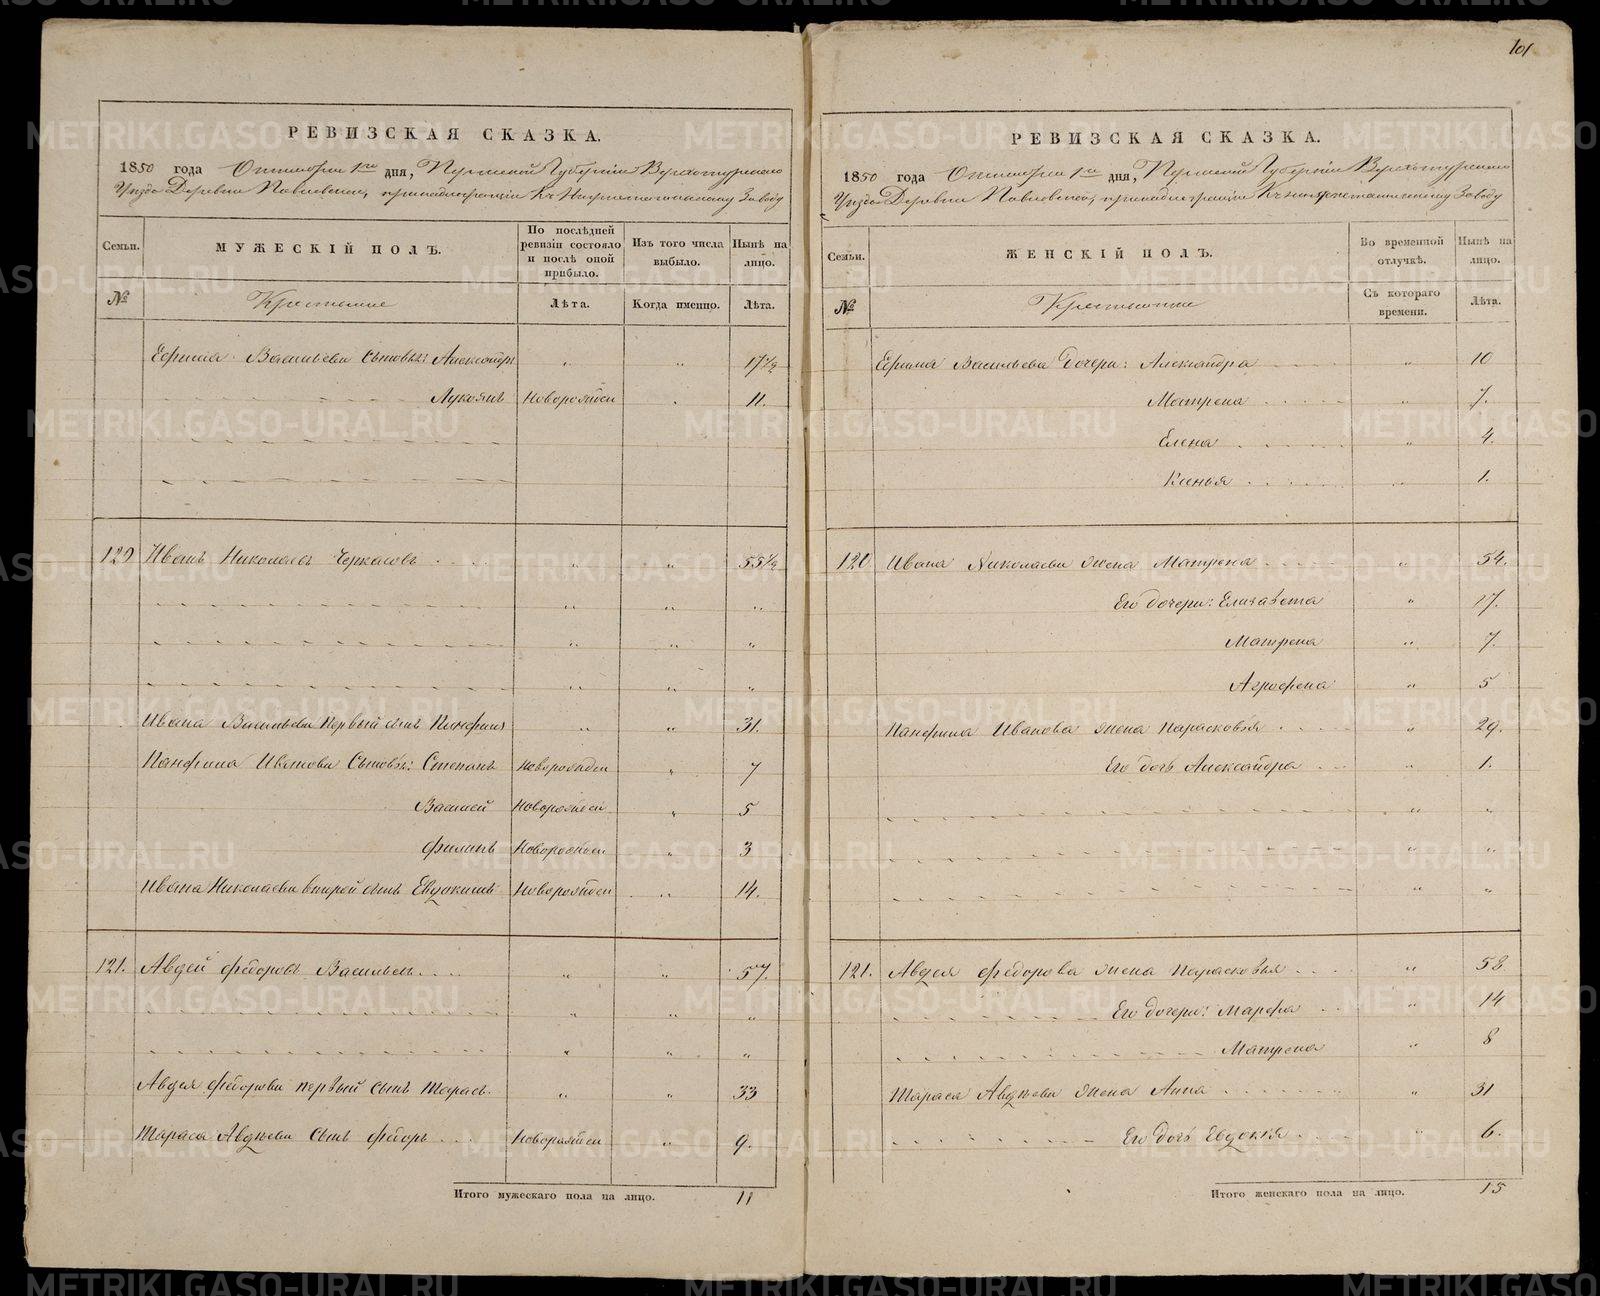 101
РЕВИЗСКАЯ СКАЗКА.
1850 года Октября 1го дня, Пермской Губернии Верхотурскаго
Уезда Деревни Павловской, принадлежащей Къ Нижнетагильскому Заводу
Семьи.
МУЖЕСКІЙ ПОЛЪ.
По послѣдней ревизіи состояло и послѣ оной прибыло.
Изъ того числа выбыло.
Нынѣ на лицо.
№
Крестьяне
Лѣта.
Когда именно.
Лѣта.
Ефима Васильева Сыновья: Александръ " " 17½
Лукоянъ Новорожден " 11.
120 Иванъ Николаевъ Черкасовъ " " 55½
Ивана Васильева первый сынъ Панфилъ " " 31.
Панфила Иванова Сыновья: Степанъ Новорожден " 7
Василей Новорожден " 5
Филипъ Новорожден " 3
Ивана Николаева второй сынъ Евдокимъ Новорожден " 14.
121. Авдей Федоровъ Васильев " " 57.
Авдея Федорова первый сынъ Тарасъ " " 33
Тараса Авдѣева сынъ Федоръ Новорожден " 9.
Итого мужескаго пола на лицо. 11
РЕВИЗСКАЯ СКАЗКА.
1850 года Октября 1го дня, Пермской Губернии Верхотурскаго
Уезда Деревни Павловской, принадлежащей Къ Нижнетагильскому Заводу
Семьи.
ЖЕНСКІЙ ПОЛЪ.
Во временной отлучкѣ.
Нынѣ на лицо.
№
Крестьянки
Съ котораго времени.
Лѣта.
Ефима Васильева дочери: Александра " 10
Матрена " 7.
Елена " 4.
Ксенья " 1.
120 Ивана Николаева жена Матрена " 54.
Его дочери: Елизавета " 17.
Матрена " 7.
Агрофена " 5
Панфила Иванова жена Парасковья " 29.
Его дочь Александра " 1.
121. Авдея Федорова жена Парасковья " 58
Его дочери: Марфа " 14
Матрена " 8
Тараса Авдѣева жена Анна " 31
Его дочь Евдокія " 6.
Итого женскаго пола на лицо. 15
METRIKI.GASO-URAL.RU